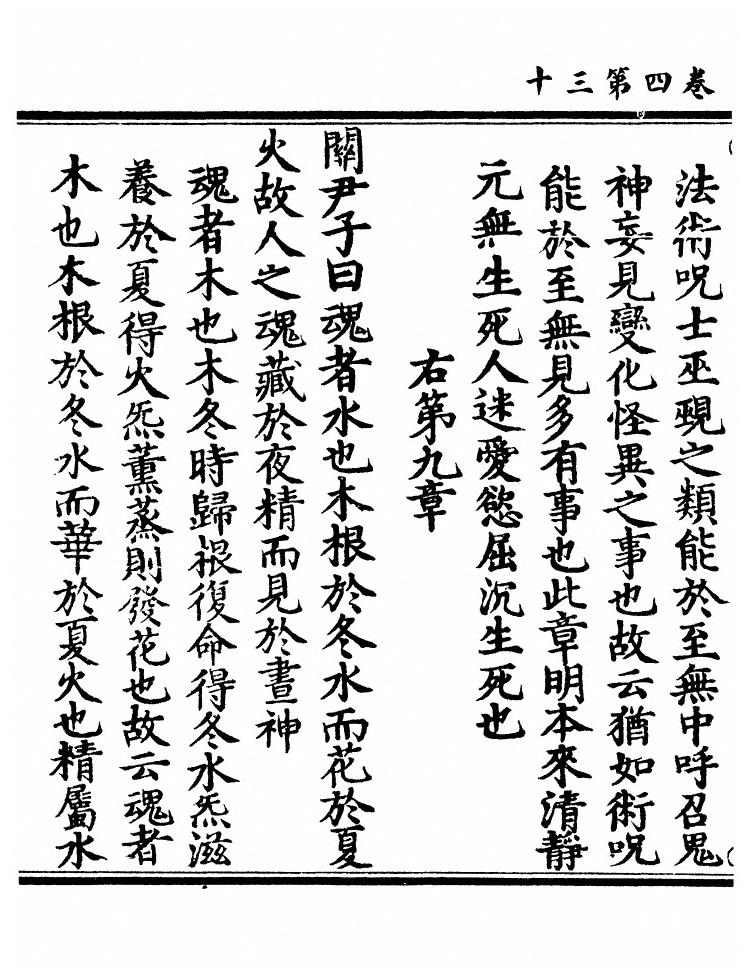 卷四第三十
法術呪士巫覡之類能於至無中呼召鬼
神妄見變化怪異之事也故云猶如術呪
能於至無見多有事也此章明本來清靜
元無生死人迷愛慾屈沉生死也
右第九章
關尹子曰魂者水也木根於冬水而花於夏
火故人之魂藏於夜精而見於晝神
魂者木也木冬時歸根復命得冬水炁滋
養於夏得火炁薰蒸則發花也故云魂者
木也木根於冬水而華於夏火也精屬水